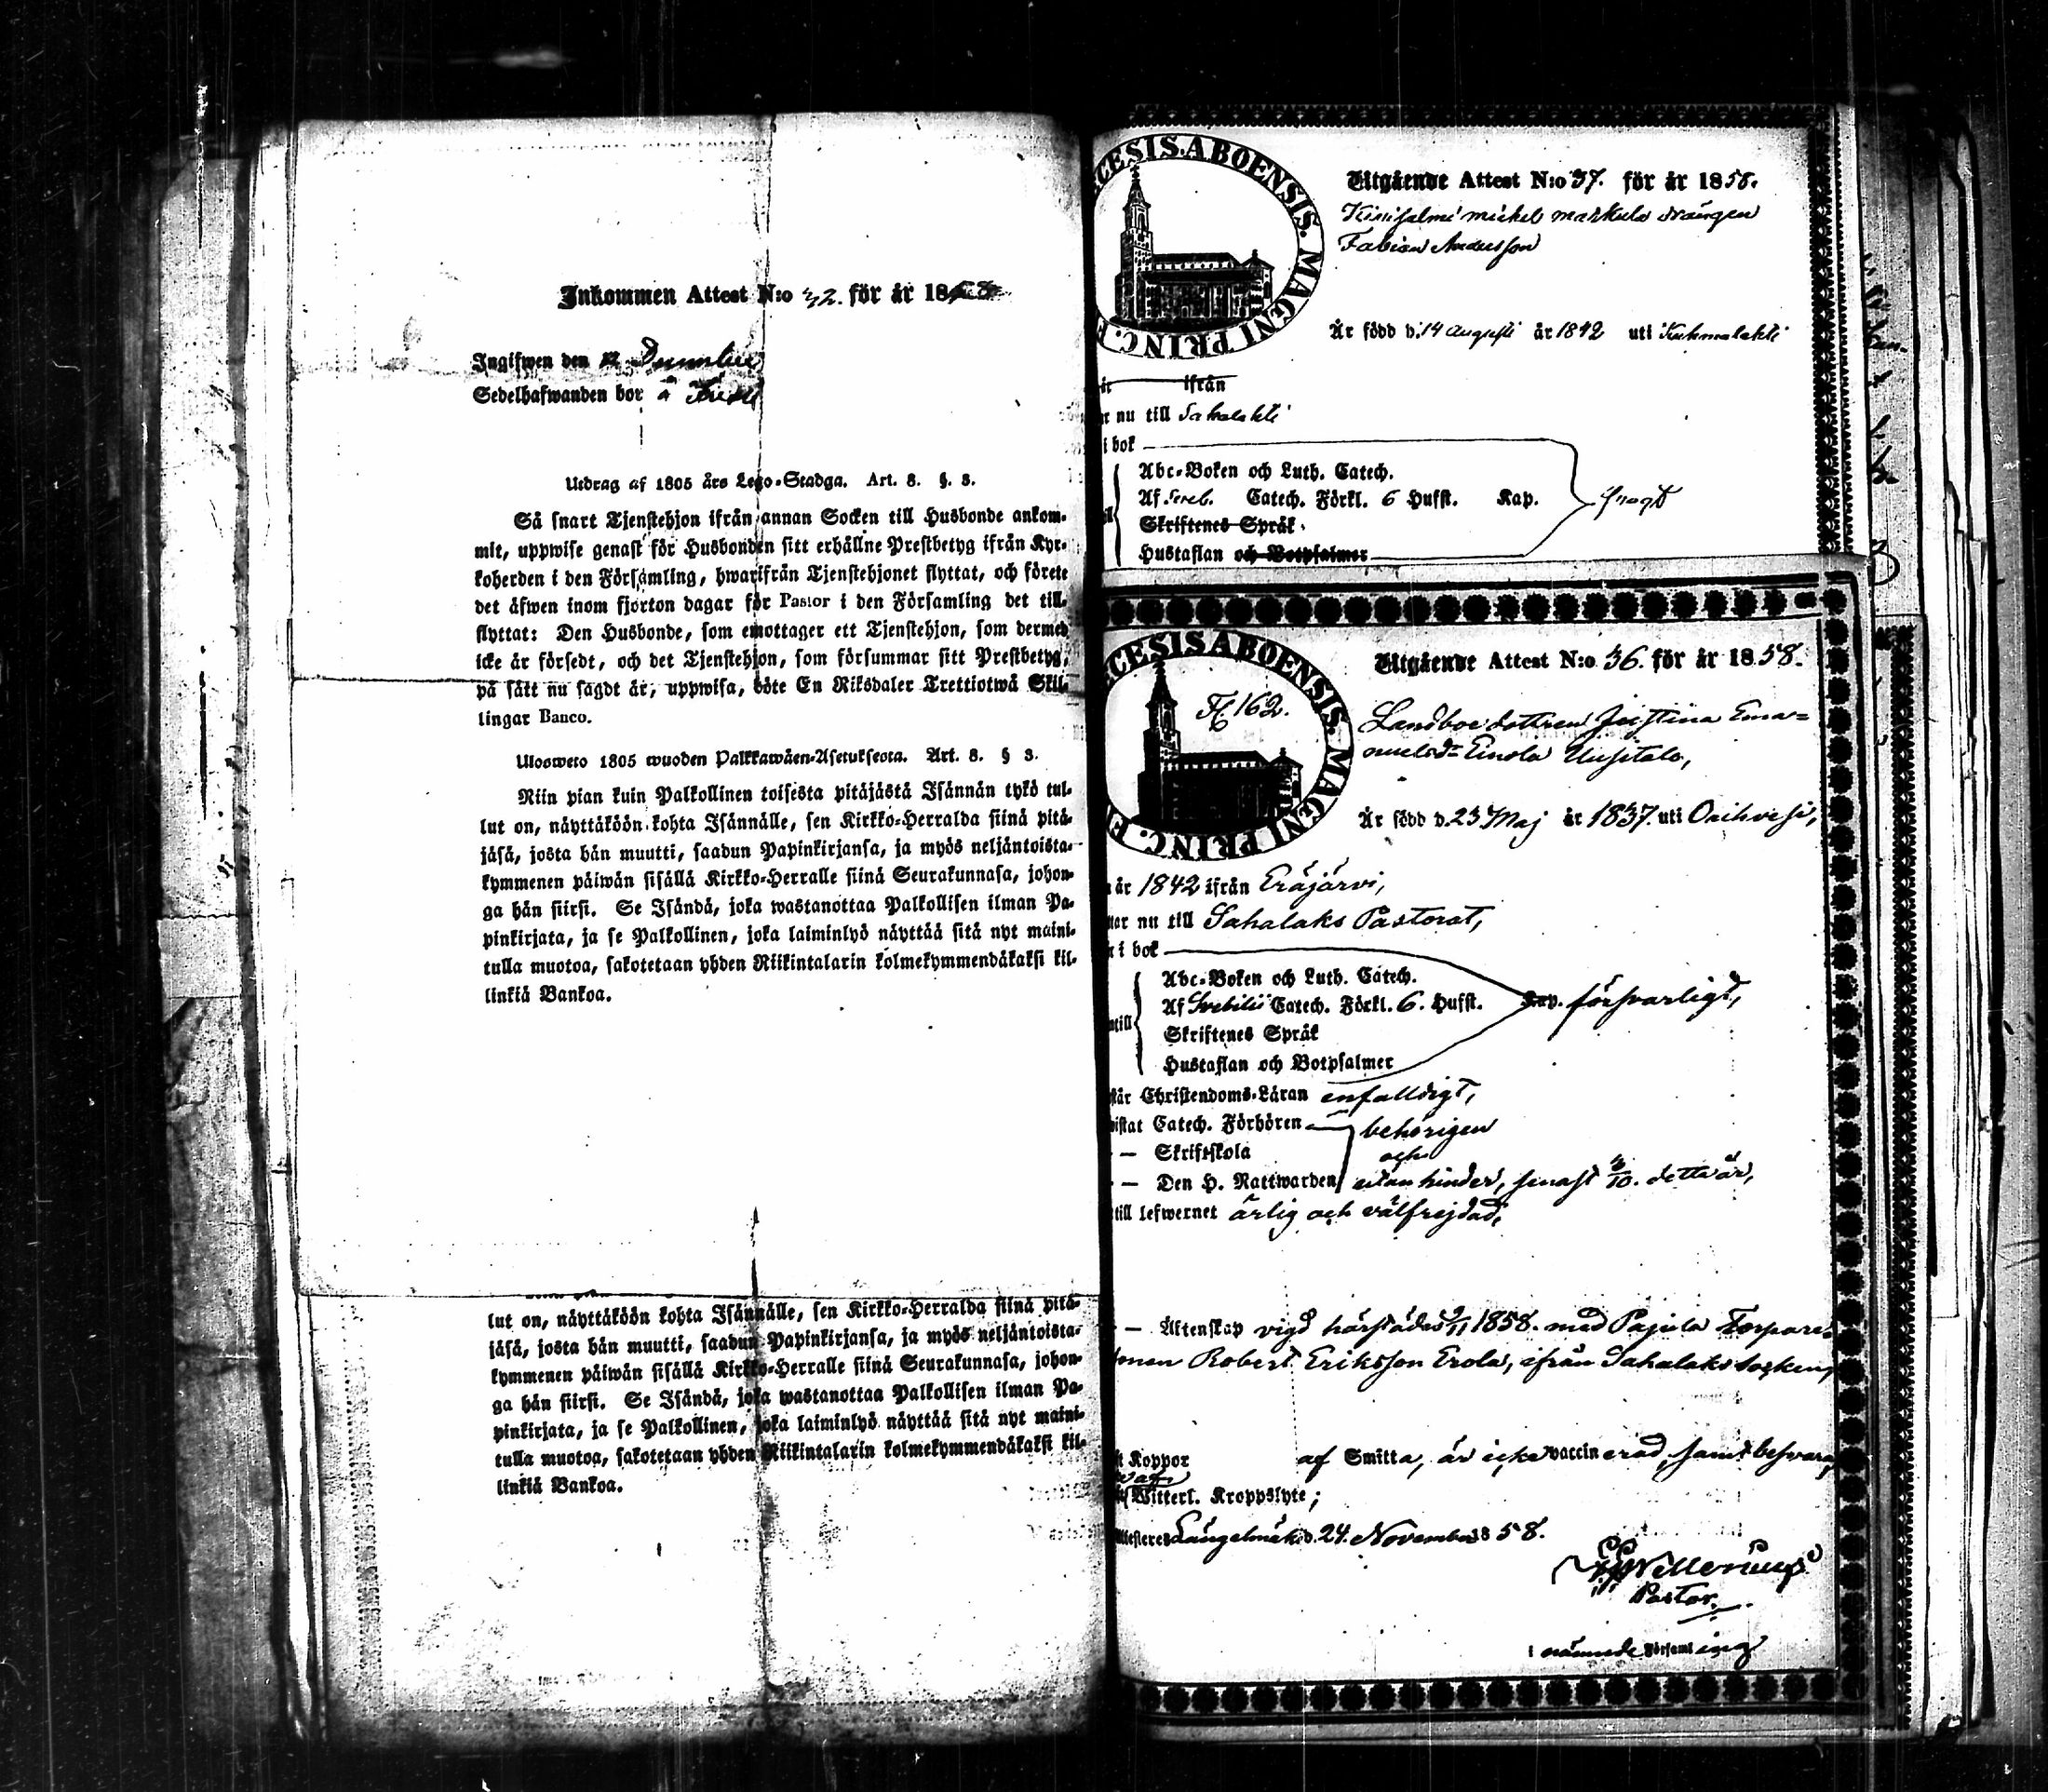 Inkommen Attest N:o 32. för år 18
Ingifwen den 12 December
Sedelhafwanden bor å
Utdrag af 1805 års Lego-Stadga. Art. 8. §. 3.
Så snart Tjenstehjon ifrån annan Socken till Husbonde ankom-
mit, uppwise genast för Husbonden sitt erhållne Prestbetyg ifrån Kyr-
koherden i den Församling, hwarifrån Tjenstehjonet flyttat, och förete
det äfwen inom fjorton dagar för Pastor i den Församling det till-
flyttat: Den Husbonde, som emottager ett Tjenstehjon, som dermed
icke är försedt, och det Tjenstehjon, som försummar sitt Prestbetyg,
på sätt nu sagdt är, uppwisa, böte En Riksdaler Trettiotwå Skil-
lingar Banco.
Ulosweto 1805 wuoden Palkkawäen-Asetuksesta. Art. 8. § 3.
Niin pian kuin Palkollinen toisesta pitäjästä Isännän tykö tul-
lut on, näyttäköön kohta Isännälle, sen Kirkko-Herralda siinä pitä-
jäsä, josta hän muutti, saadun Papinkirjansa, ja myös neljäntoista-
kymmenen päiwän sisällä Kirkko-Herralle siinä Seurakunnasa, johon-
ga hän siirsi. Se Isändä, joka wastanottaa Palkollisen ilman Pa-
pinkirjata, ja se Palkollinen, joka laiminlyö näyttää sitä nyt maini-
tulla muotoa, sakotetaan yhden Riikintalarin kolmekymmendäkaksi kil-
linkiä Bankoa.
lut on, näyttäköön kohta Isännälle, sen Kirkko-Herralda siinä pitä-
jäsä, josta hän muutti, saadun Papinkirjansa, ja myös neljäntoista-
kymmenen päiwän sisällä Kirkko-Herralle siinä Seurakunnasa, johon-
ga hän siirsi. Se Isändä, joka wastanottaa Palkollisen ilman Pa-
pinkirjata, ja se Palkollinen, joka laiminlyö näyttää sitä nyt maini-
tulla muotoa, sakotetaan yhden Riikintalarin kolmekymmendäkaksi kil-
linkiä Bankoa.
CESIS. ABOENSIS. MAGNI PRINC.
Utgående Attest N:o 37. för år 1858.
michel markula drängen
Fabian Andersson
Är född d. 14 Augusti år 1842 uti Kuhmalahti
ifrån
nu till Sahalahti
i bok
Abc-Boken och Luth. Catech.
Af Sveb. Catech. Förkl. 6 Hufst. Kap.
Skriftenes Språk
Hustaflan och Botpsalmer
CESIS ABOENSIS. MAGNI PRINC.
162.
Utgående Attest N:o 36. för år 1858.
Landboedottren Justina Ema=
nuelsd= Einola Uusitalo,
Är född d. 23 Maj år 1837. uti Orihvesi,
år 1842 ifrån Eräjärvi,
nu till Sahalaks Pastorat,
i bok
Abc-Boken och Luth. Catech.
Af Svebilii Catech. Förkl. 6. Hufst. Kap. försvarligt,
Skriftenes Språk
Hustaflan och Botpsalmer
Christendoms-Läran enfalldigt,
Catech. Förhören behörigen
— Skriftskola och
— Den H. Nattwarden utan hinder, senast 3/10. detta år,
till lefwernet ärlig och välfrejdad,
— Äktenskap vigd härstädes 2/11 1858. med Pajula Torpare-
sonen Robert Eriksson Erola, ifrån Sahalaks socken,
Koppor af Smitta, är icke vaccinerad, samt besvaras
Witterl. Kroppslyte;
Attesteres Längelmäki d. 24. November 1858.
Pastor.
i nämnde Församling